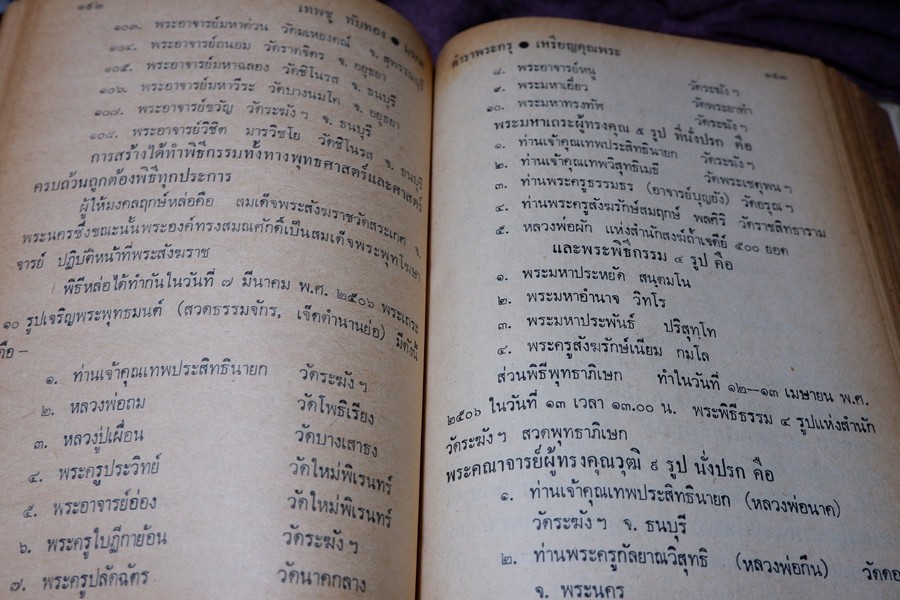 ๑๕๒ เทพชู ทับทอง ●
๑๐๓. พระอาจารย์มหาต่วน วัดมเหยงคณ์ จ. สุพรรณบุรี
๑๐๔. พระอาจารย์ถนอม วัดราคจิตร จ. อยุธยา
๑๐๕. พระอาจารย์มหาฉลอง วัดชิโนรส จ. ธนบุรี
๑๐๖. พระอาจารย์มหาวีระ วัดบางนมโค จ. อยุธยา
๑๐๗. พระอาจารย์ขวัญ วัดระฆังฯ จ. ธนบุรี
๑๐๘. พระอาจารย์วิชิต มารวิชโย วัดชิโนรส จ. ธนบุรี
การสร้างได้ทำพิธีกรรมทั้งทางพุทธศาสตร์และศาสตร์
ครบถ้วนถูกต้องพิธีทุกประการ
ผู้ให้มงคลฤกษ์หล่อคือ สมเด็จพระสังฆราชวัดสระเกศ จ.
พระนครซึ่งขณะนั้นพระองค์ทรงสมณศักดิ์เป็นสมเด็จพระพุทโฆษา
จารย์ ปฏิบัติหน้าที่พระสังฆราช
พิธีหล่อได้ทำกันในวันที่ ๗ มีนาคม พ.ศ. ๒๕๐๖ พระเถระ
๑๐ รูปเจริญพระพุทธมนต์ (สวดธรรมจักร, เจ็ดตำนานย่อ) มีดังนี้
คือ–
๑. ท่านเจ้าคุณเทพประสิทธินายก วัดระฆังฯ
๒. หลวงพ่อถม วัดโพธิเรียง
๓. หลวงปู่เผือน วัดบางเสาธง
๔. พระครูประวิทย์ วัดใหม่พิเรนทร์
๕. พระอาจารย์อ่อง วัดใหม่พิเรนทร์
๖. พระครูใบฎีกาย้อน วัดระฆังฯ
๗. พระครูปลัดฉัตร วัดนาคกลาง
ตำราพระกรุ ● เหรียญคุณพระ ๑๕๓
๘. พระอาจารย์หนู วัดระฆังฯ
๙. พระมหาเอี่ยว วัดพระยาทำ
๑๐. พระมหาทรงทัศ วัดระฆังฯ
พระมหาเถระผู้ทรงคุณ ๕ รูป ที่นั่งปรก คือ
๑. ท่านเจ้าคุณเทพประสิทธินายก วัดระฆังฯ
๒. ท่านเจ้าคุณเทพวิสุทธิเมธี วัดพระเชตุพนฯ
๓. ท่านพระครูธรรมธร (อาจารย์บุญยัง) วัดอรุณฯ
๔. ท่านพระครูสังฆรักษ์สมฤกษ์ พลศิริ วัดราชสิทธาราม
๕. หลวงพ่อผัก แห่งสำนักสงฆ์ถ้ำเจดีย์ ๕๐๐ ยอด
และพระพิธีกรรม ๔ รูป คือ
๑. พระมหาประหยัด สนฺตมโน
๒. พระมหาอำนาจ วิทโร
๓. พระมหาประพันธ์ ปริสุทฺโท
๔. พระครูสังฆรักษ์เนียม กมโล
ส่วนพิธีพุทธาภิเษก ทำในวันที่ ๑๒–๑๓ เมษายน พ.ศ.
๒๕๐๖ ในวันที่ ๑๓ เวลา ๑๓.๐๐ น. พระพิธีธรรม ๔ รูปแห่งสำนัก
วัดระฆังฯ สวดพุทธาภิเษก
พระคณาจารย์ผู้ทรงคุณวุฒิ ๙ รูป นั่งปรก คือ
๑. ท่านเจ้าคุณเทพประสิทธินายก (หลวงพ่อนาค)
วัดระฆังฯ จ. ธนบุรี
๒. ท่านพระครูกัลยาณวิสุทธิ (หลวงพ่อกึน) วัดดอ
จ. พระนคร